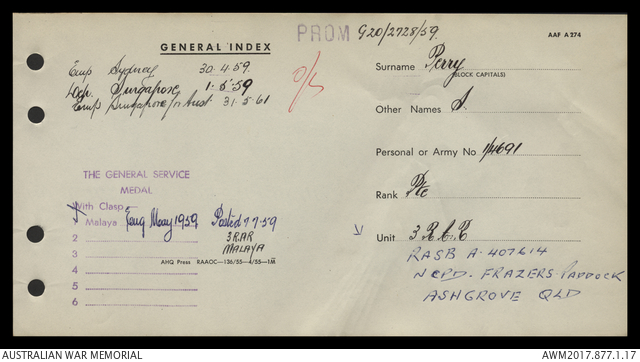 PROM G20/2728/59.
AAF A274
GENERAL INDEX
Emp Sydney 30.4.59.
Singapore 1.5.59
Emp Singapore for Aust 31.5.61
Surname Perry
(BLOCK CAPITALS)
Other Names S.
Personal or Army No 1/4691
Rank Pte
Unit 3 R.A.R
RASB A-407614
FRAZERS PADDOCK
ASHGROVE QLD
THE GENERAL SERVICE
MEDAL
With Clasp
1 Malaya 1959 Posted 7.7.59
2 3RAR
3 MALAYA
AHQ Press RAAOC—136/55—4/55—1M
4
5
6
AUSTRALIAN WAR MEMORIAL
AWM2017.877.1.17